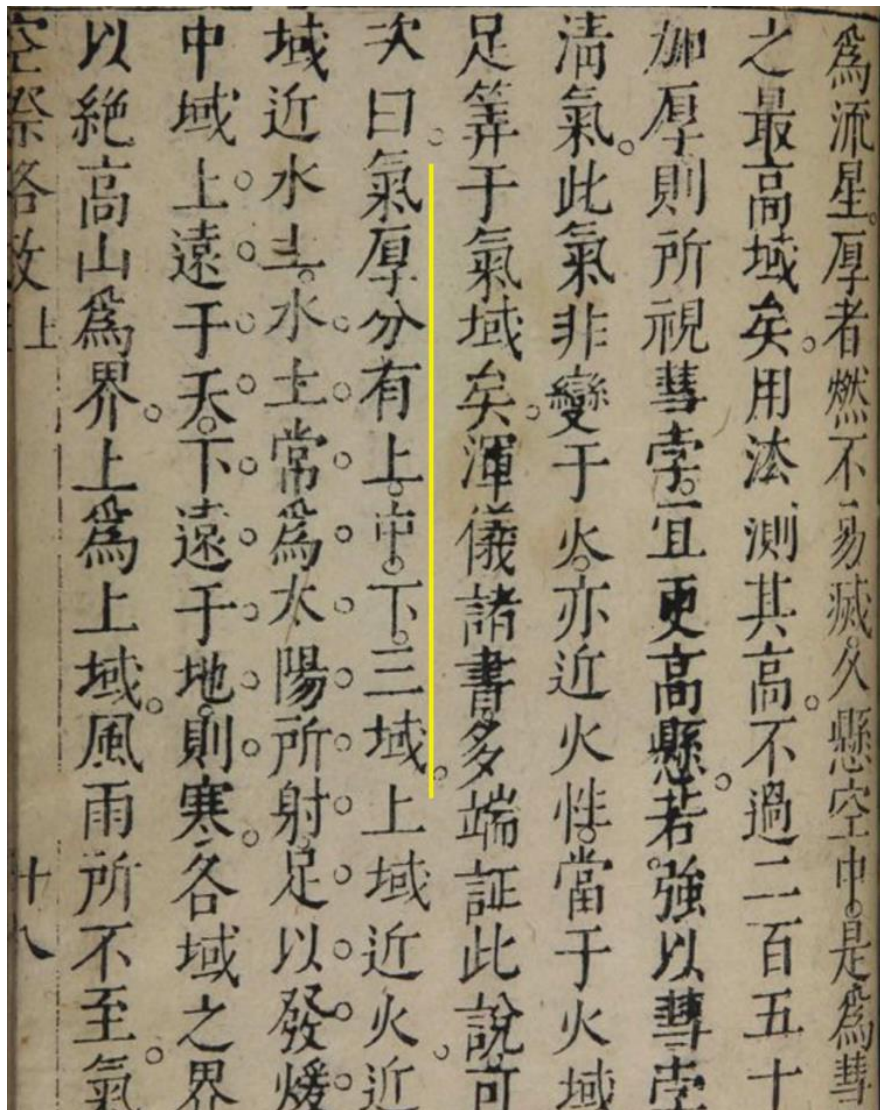 爲流星。厚者燃不易滅。久懸空中。是爲彗
之最高域矣。用法測其高。不過二百五十
加厚。則所視彗孛。宜更高懸。若強以彗孛
淸氣。此氣非變于火。亦近火性。當于火域
足筭于氣域矣。渾儀諸書。多端証此說。可
次曰。氣厚分有上。中。下。三域。上域近火。近
域近水土。水土常爲太陽所射。足以發煖
中域上遠于天。下遠于地。則寒。各域之界
以絶高山爲界。上爲上域。風雨所不至。氣
空際格致 上
十八